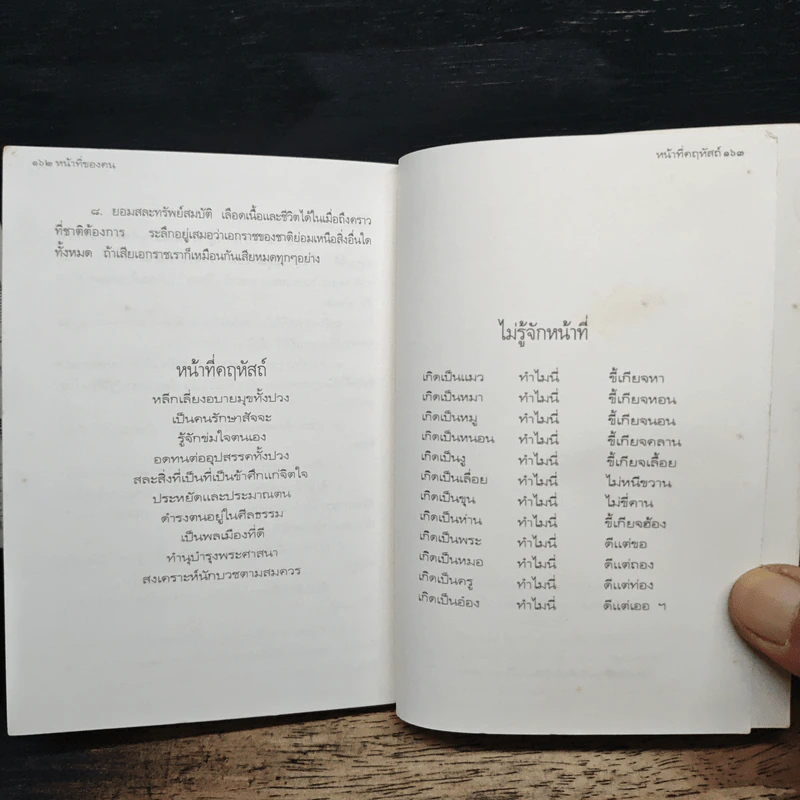 ๑๖๒ หน้าที่ของคน
๘. ยอมสละทรัพย์สมบัติ เลือดเนื้อและชีวิตได้ในเมื่อถึงคราว
ที่ชาติต้องการ ระลึกอยู่เสมอว่าเอกราชของชาติย่อมเหนือสิ่งอื่นใด
ทั้งหมด ถ้าเสียเอกราชเราก็เหมือนกันเสียหมดทุกๆอย่าง
หน้าที่คฤหัสถ์
หลีกเลี่ยงอบายมุขทั้งปวง
เป็นคนรักษาสัจจะ
รู้จักข่มใจตนเอง
อดทนต่ออุปสรรคทั้งปวง
สละสิ่งที่เป็นที่เป็นข้าศึกแก่จิตใจ
ประหยัดและประมาณตน
ดำรงตนอยู่ในศีลธรรม
เป็นพลเมืองที่ดี
ทำนุบำรุงพระศาสนา
สงเคราะห์นักบวชตามสมควร
หน้าที่คฤหัสถ์ ๑๖๓
ไม่รู้จักหน้าที่
เกิดเป็นแมว ทำไมนี่ ขี้เกียจหา
เกิดเป็นหมา ทำไมนี่ ขี้เกียจหอน
เกิดเป็นหมู ทำไมนี่ ขี้เกียจนอน
เกิดเป็นหนอน ทำไมนี่ ขี้เกียจคลาน
เกิดเป็นงู ทำไมนี่ ขี้เกียจเลื้อย
เกิดเป็นเลื่อย ทำไมนี่ ไม่หนีขวาน
เกิดเป็นขุน ทำไมนี่ ไม่ขี่คาน
เกิดเป็นห่าน ทำไมนี่ ขี้เกียจฮ้อง
เกิดเป็นพระ ทำไมนี่ ดีแต่ขอ
เกิดเป็นหมอ ทำไมนี่ ดีแต่ถอง
เกิดเป็นครู ทำไมนี่ ดีแต่ท่อง
เกิดเป็นอ๋อง ทำไมนี่ ดีแต่เออ ฯ